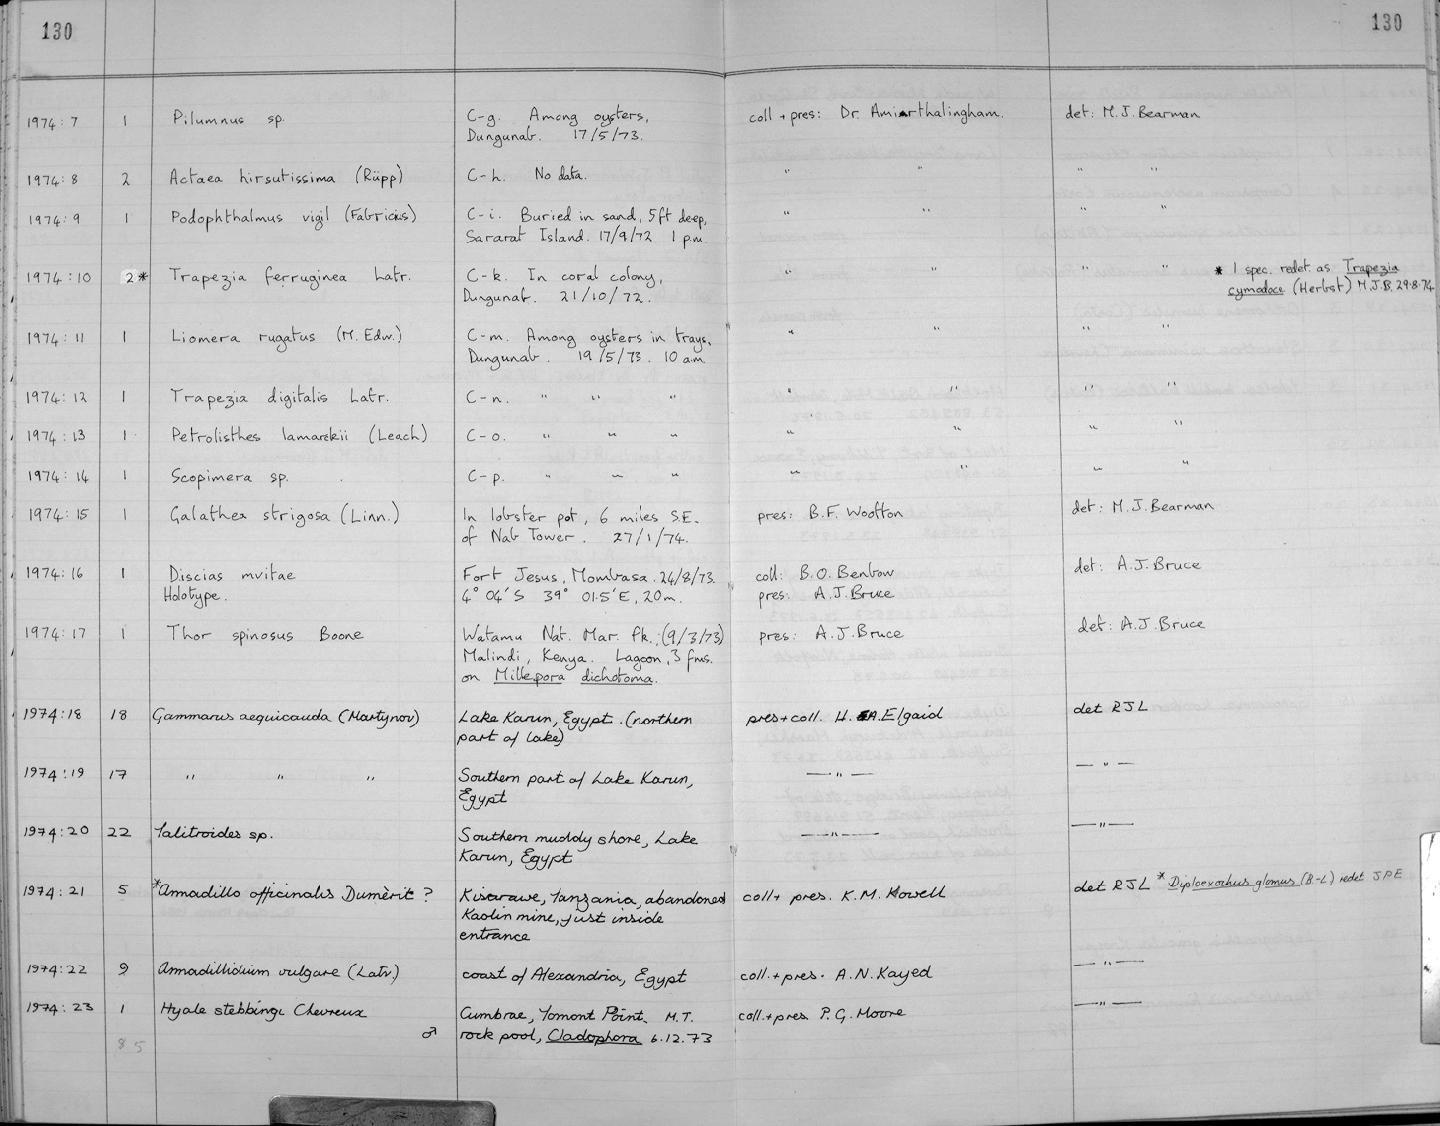 130
130
1974:7 1 Pilumnus sp. C-g. Among oysters, coll + pres: Dr. Amirthalingham. det: M.J. Bearman
Dungunab. 17/5/73.
1974:8 2 Actaea hirsutissima (Rüpp) C-h. No data. " " " "
1974:9 1 Podophthalmus vigil (Fabricius) C-i. Buried in sand, 5ft deep, " " " "
Sararat Island. 17/9/72 1 p.m.
1974:10 2* Trapezia ferruginea Latr. C-k. In coral colony, " " " " * 1 spec. redet. as Trapezia
Dungunab. 21/10/72. cymodoce (Herbst) M.J.B. 29.8.74
1974:11 1 Liomera rugatus (M. Edw.) C-m. Among oysters in trays, " " " "
Dungunab. 19/5/73. 10 a.m.
1974:12 1 Trapezia digitalis Latr. C-n. " " " " " " "
1974:13 1 Petrolisthes lamarckii (Leach) C-o. " " " " " " "
1974:14 1 Scopimera sp. C-p. " " " " " " "
1974:15 1 Galathea strigosa (Linn.) In lobster pot, 6 miles S.E. pres: B.F. Wootton det: M.J. Bearman
of Nab Tower. 27/1/74.
1974:16 1 Discias mvitae Fort Jesus, Mombasa. 24/8/73. coll: B.O. Benbow det: A.J. Bruce
Holotype. 4° 04'S 39° 01.5'E, 20m. pres: A.J. Bruce
1974:17 1 Thor spinosus Boone Watamu Nat. Mar. Pk. (9/3/73) pres: A.J. Bruce det: A.J. Bruce
Malindi, Kenya. Lagoon, 3 fms.
on Millepora dichotoma.
1974:18 18 Gammarus aequicauda (Martynov) Lake Karun, Egypt. (northern pres+coll. H. A. Elgaid det RJL
part of lake)
1974:19 17 " " " Southern part of Lake Karun, —"— —"—
Egypt
1974:20 22 Talitroides sp. Southern muddy shore, Lake —"— —"—
Karun, Egypt
1974:21 5 *Armadillo officinalis Dumèrit ? Kisarawe, Tanzania, abandoned coll+ pres. K.M. Howell det RJL * Diploexochus glomus (B-L) redet JPE
Kaolin mine, just inside
entrance
1974:22 9 Armadillidium vulgare (Latr) coast of Alexandria, Egypt coll.+pres. A.N. Kayed —"—
1974:23 1 Hyale stebbingi Chevreux Cumbrae, Tomont Point. M.T. coll.+pres P.G. Moore —"—
♂ rock pool, Cladophora 6.12.73
85